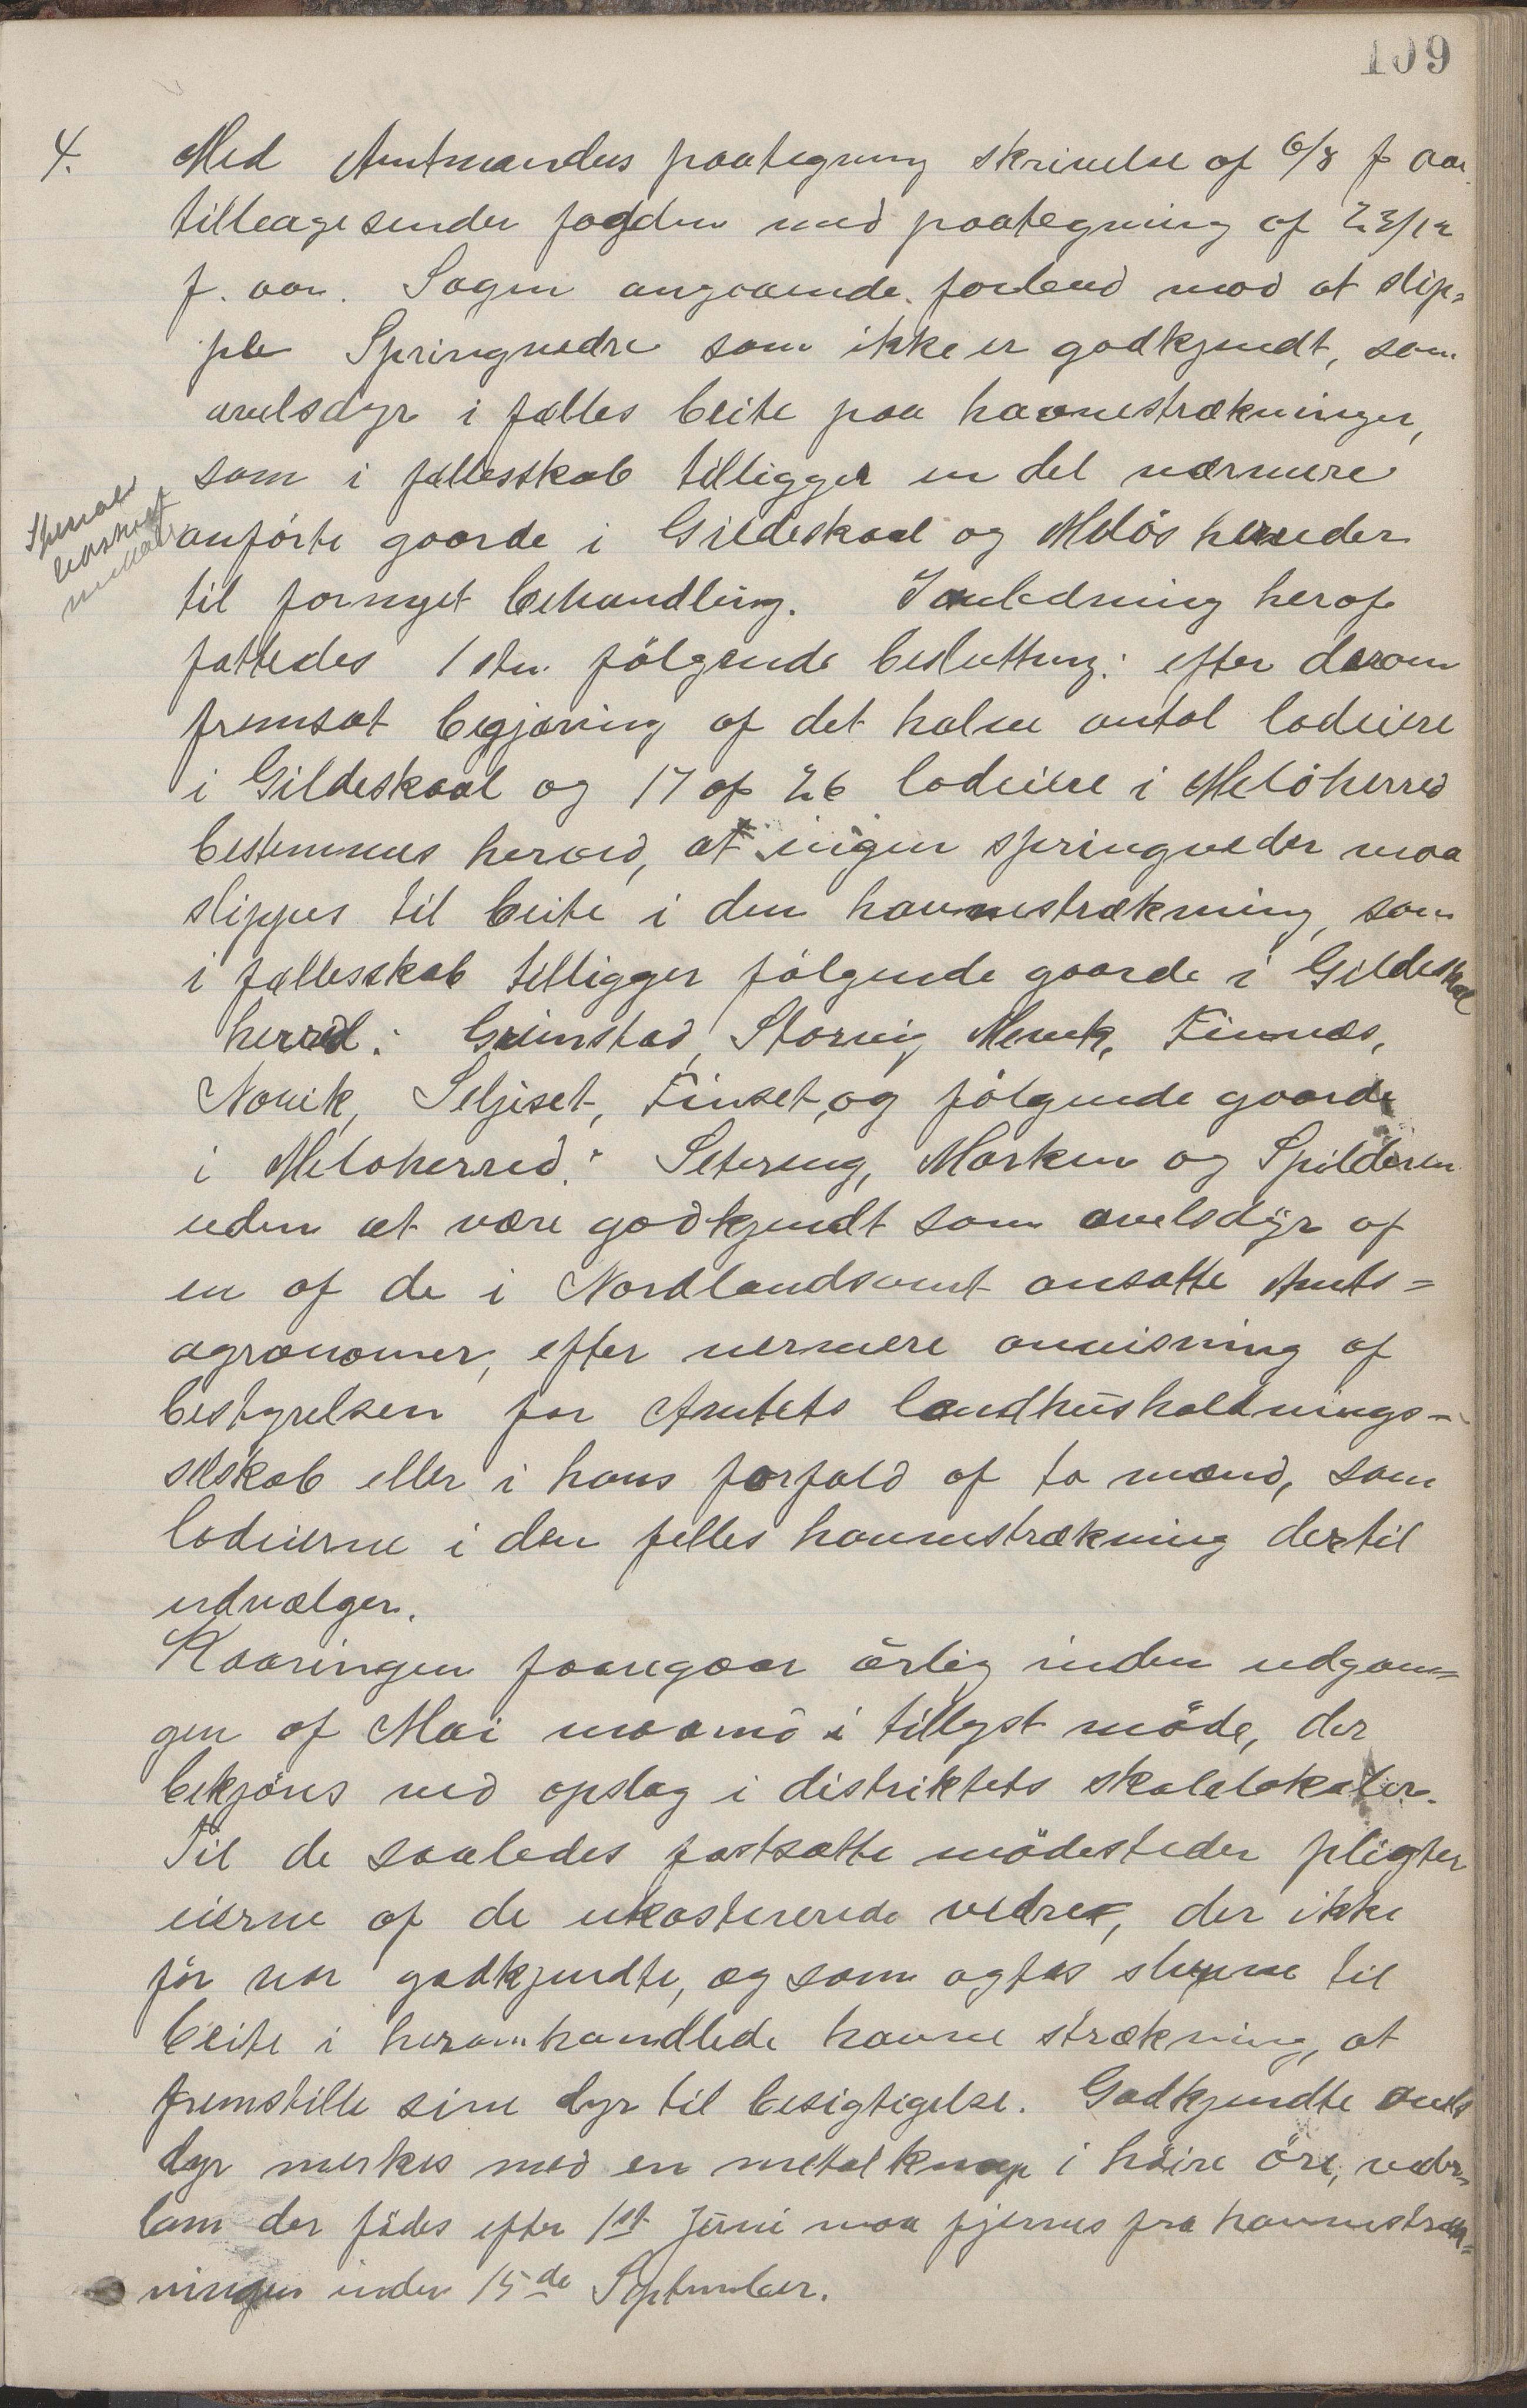 109
4. Med Amtmandens paategning skrivelse af 6/8 f aar
tilbagesender fogden med paategning af 23/12
f. aar. Sagen angaaende forbud mod at slip-
pe Springvedre som ikke er godkjendt, som
avelsdyr i fælles beite paa havnestrækninger,
som i fællesskab tilligger en del nærmere
anførte gaarde i Gildeskaal og Meløs herreder
til fornyet behandling. I anledning heraf
fattedes 1 stm. følgende beslutting: efter derom
fremsat begjæring af det halve antal lodeiere
i Gildeskaal og 17 af 26 lodeiere i Meløherred
bestemmes herved, at ingen springveder maa
slippes til beite i den havnestrækning, som
i fællesskab tilligger følgende gaarde i Gildeskaal
herred: Grimstad, Storvig, Mevik, Finnæs,
Novik, Seljeset, Finset, og følgende gaarde
i Meløherred: Setereng, Marken og Spilderen
uden at være godkjendt som avelsdyr af
en af de i Nordlandsamt ansatte Amts=
agronomer, efter nermere anvisning af
bestyrelsen for Amtets landhusholdnings-
selskab eller i hans forfald af to mænd, som
lodeierne i den felles havnestrækning dertil
udvælger.
Kaaringen foregaar årlig inden udgan=
gen af Mai maaned i tillyst møde, der
bekjøres ved opslag i distriktets skolelokaler.
Til de saaledes fastsatte mødesteder pligter
eierne af de ukasterede vedrer, der ikke
før var godkjendte, og som agtes sluppne til
beite i heromhandlede havne strækning, at
fremstille sine dyr til besigtigelse. Godkjendte avels
dyr merkes med en metalknap i høire øre, veder=
lam der fødes efter 1st Juni maa fjernes fra havnestræk=
ningen inden 15de September.